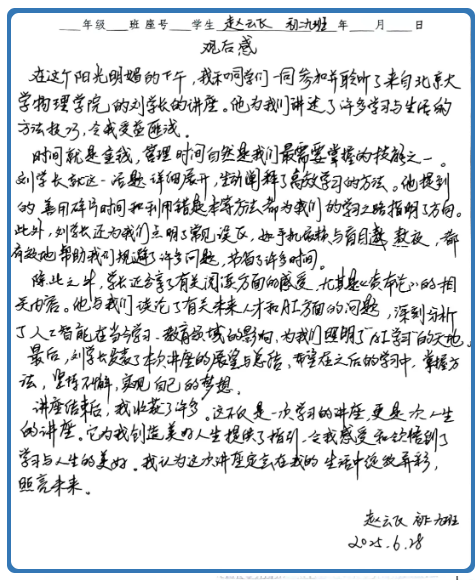 年级 班 座号 学生 赵云飞 初九班 年 月 日
观后感
在这个阳光明媚的下午，我和同学们一同参加并聆听了来自北京大
学物理学院的刘学长的讲座。他为我们讲述了许多学习与生活的
方法技巧，令我受益匪浅。
时间就是金钱，管理时间自然是我们最需要掌握的技能之一。
刘学长就这一话题详细展开，生动阐释了高效学习的方法。他提到
的善用碎片时间和利用错题本等方法都为我们的学习之路指明了方向。
此外，刘学长还为我们点明了常见误区，如手机依赖与盲目熬夜，都
有效地帮助我们规避了许多问题，节省了许多时间。
除此之外，学长还分享了有关阅读方面的感受，尤其是《资本论》的相
关内容。他与我们谈论了有关未来人才和AI方面的问题，深刻分析
了人工智能在当今学习、教育领域的影响，为我们照明了“AI学习”的天地。
最后，刘学长发表了本次讲座的展望与总结，希望在之后的学习中，掌握方
法，坚持不懈，实现自己的梦想。
讲座结束后，我收获了许多。这不仅是一次学习的讲座，更是一次人生
的讲座。它为我创造美好人生提供了指引，令我感受和领悟到了
学习与人生的美好。我认为这次讲座定会在我的生活中绽放异彩，
照亮未来。
赵云飞 初九班
2025.6.28